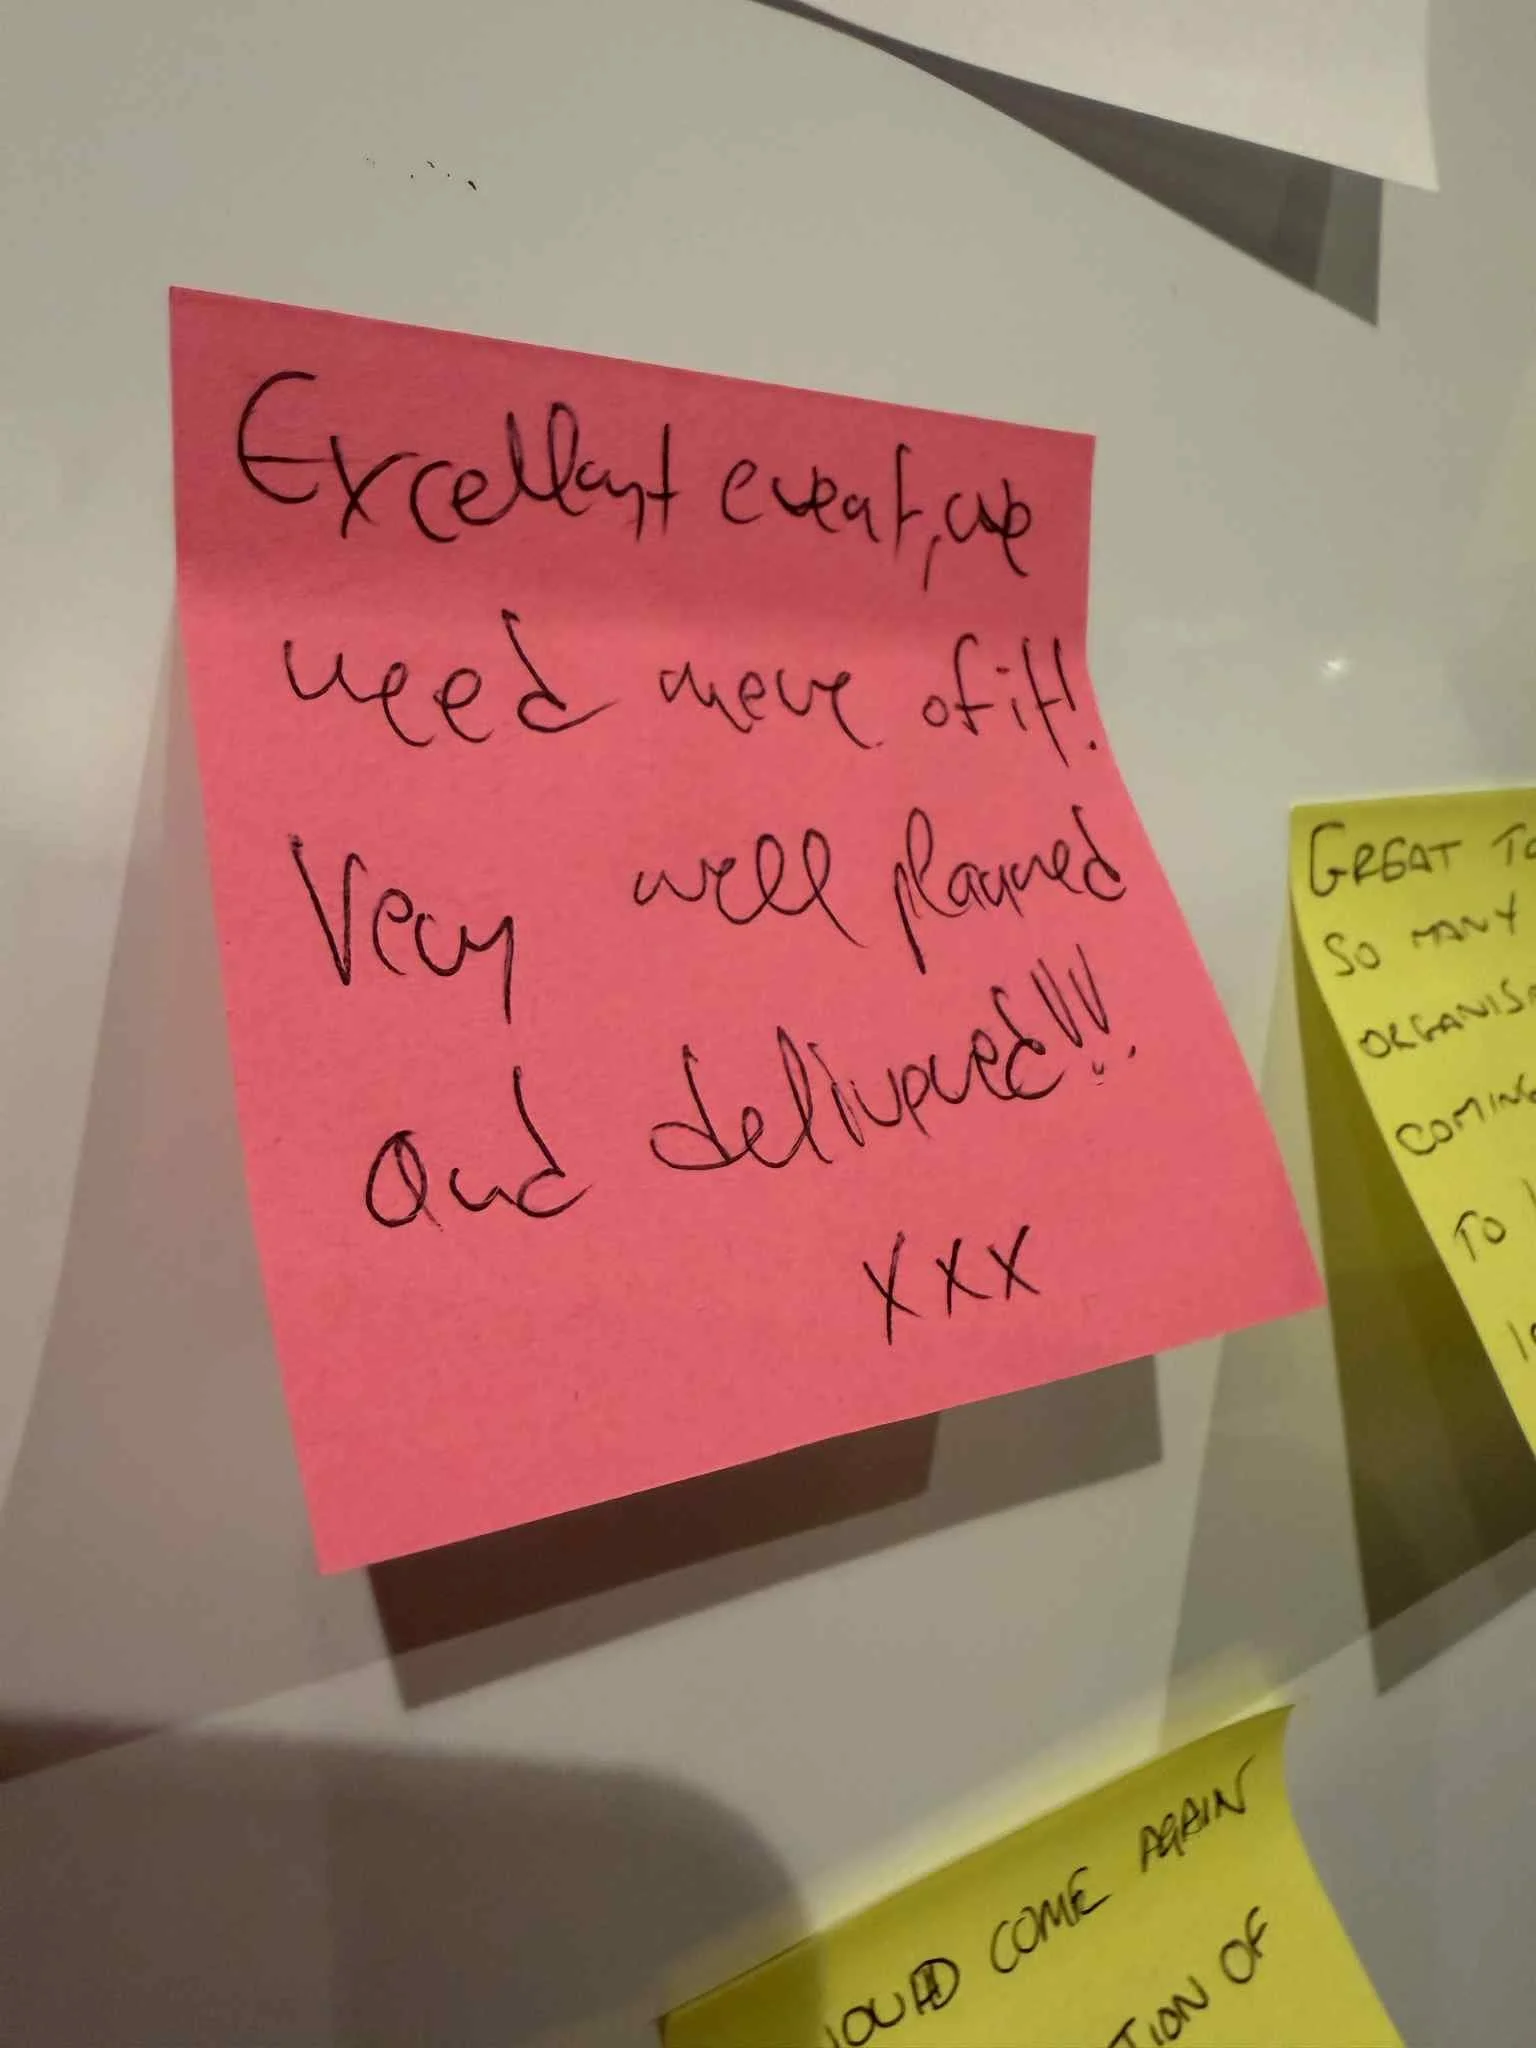 Excellant event, we
need more of it!
Very well planned
and delivered!!!
xxx
GREAT TO
SO MANY
ORGANISA
COMING
TO
WOULD COME AGAIN
TION OF